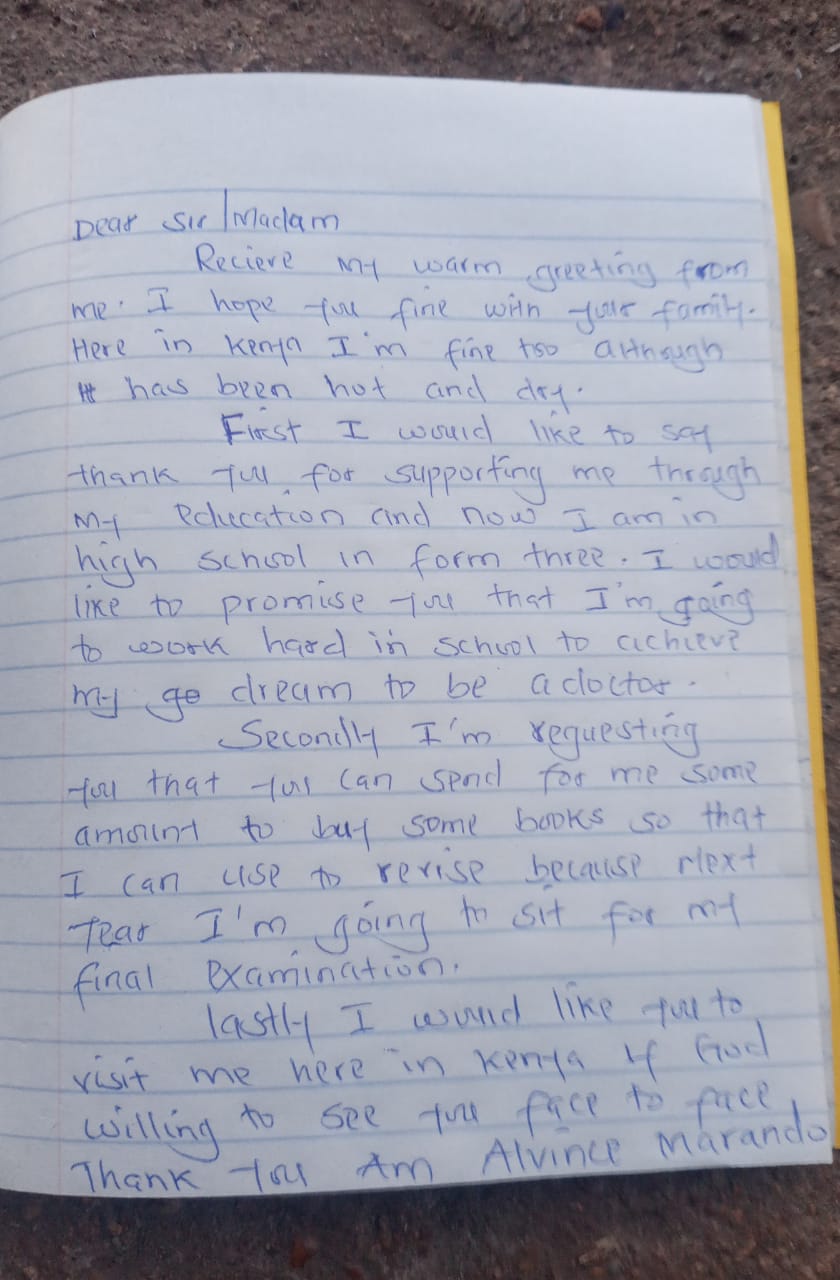 Dear Sir/Madam
Recieve my warm greeting from
me. I hope you fine with your family.
Here in Kenya I'm fine too although
It has been hot and dry.
First I would like to say
thank you for supporting me through
my education and now I am in
high school in form three. I would
like to promise you that I'm going
to work hard in school to achieve
my go dream to be a doctor.
Secondly I'm requesting
you that you can send for me some
amount to buy some books so that
I can use to revise because Next
Year I'm going to sit for my
final examination.
lastly I would like you to
visit me here in Kenya If God
willing to see you face to face,
Thank you Am Alvince Marando